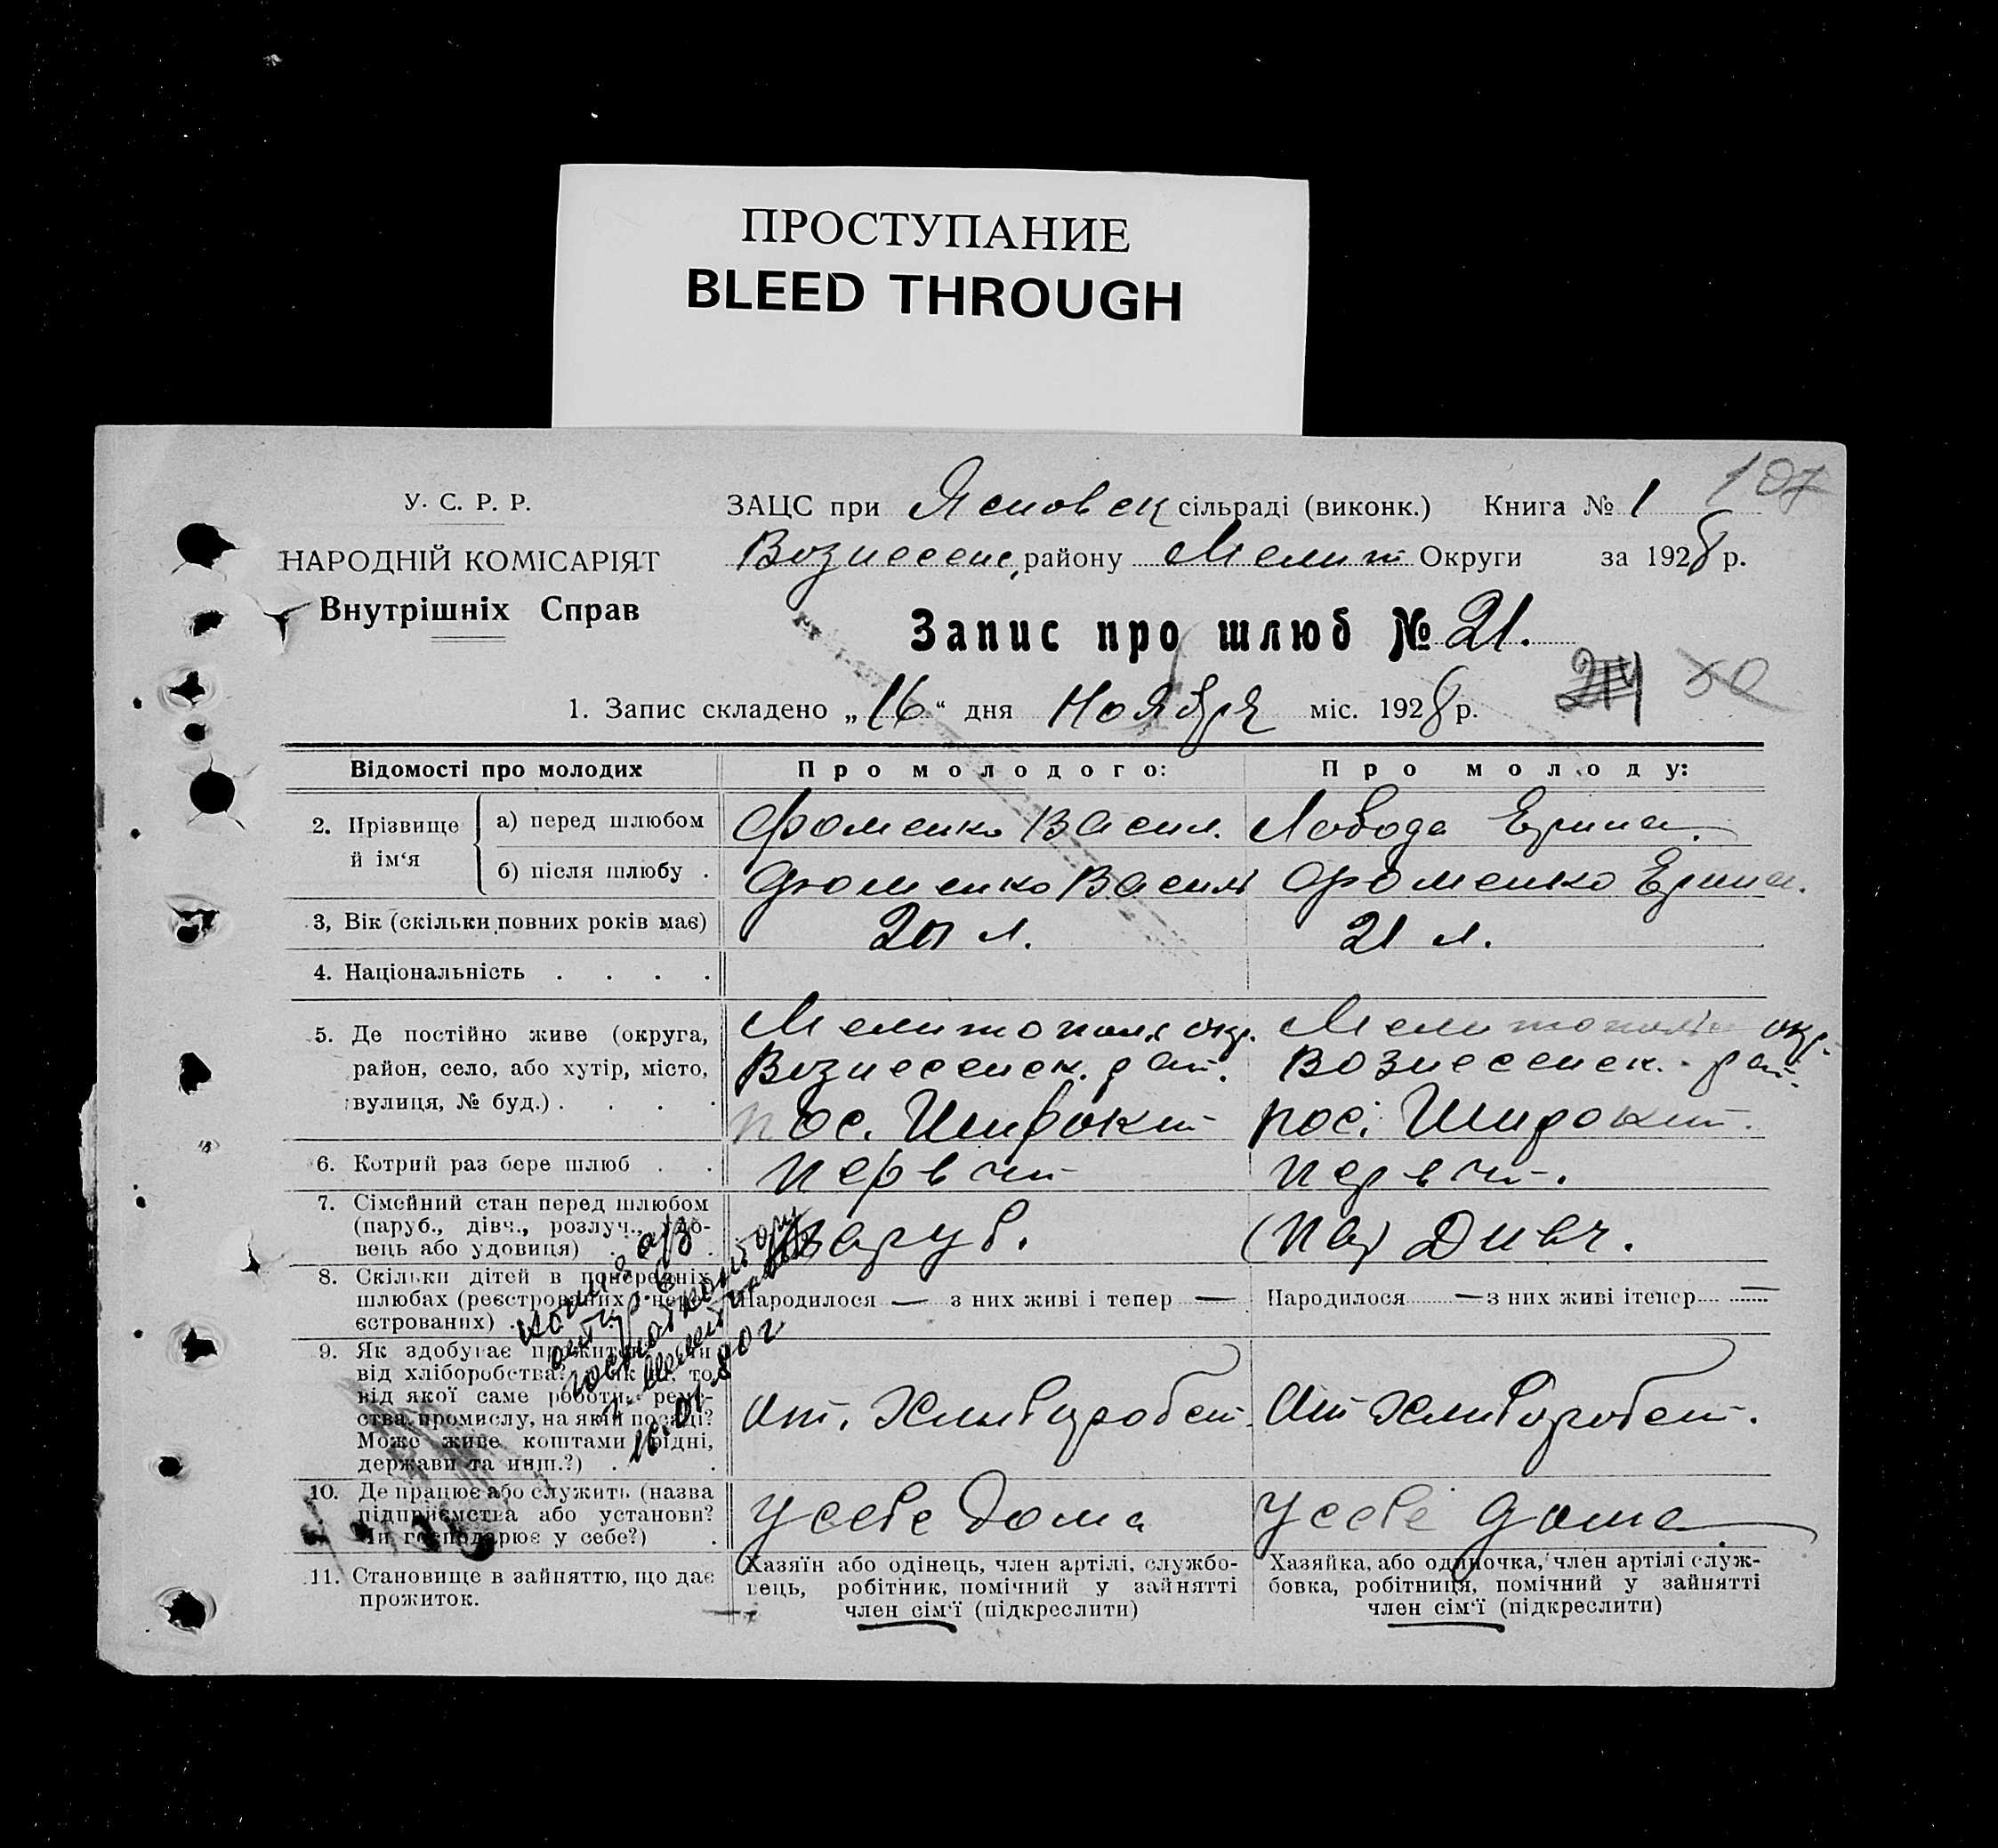 ПРОСТУПАНИЕ
BLEED THROUGH
107
У. С. Р. Р.
НАРОДНІЙ КОМІСАРІЯТ
Внутрішніх Справ
ЗАЦС при Ясновск сільраді (виконк.) Книга № 1
Вознесенс. району Мелит Округи за 1928 р.
Запис про шлюб № 21.
1. Запис складено „16“ дня Ноября міс. 1928 р.
Відомості про молодих
Про молодого:
Про молоду:
2. Прізвище й ім‘я
а) перед шлюбом
Фоменко Васил.
Лобода Ерина.
б) після шлюбу .
Фоменко Василь
Фоменко Ерина.
3, Вік (скільки повних років має)
20 л.
21 л.
4. Національність . . . .
5. Де постійно живе (округа,
район, село, або хутір, місто,
вулиця, № буд.) . . . .
Мелитополя окр.
Вознесенск. рай.
пос. Широкий
Мелитополя окр.
Вознесенск. рай.
пос. Широкий.
6. Котрий раз бере шлюб . .
первый
первый.
7. Сімейний стан перед шлюбом
(паруб., дівч., розлуч., удо-
вець або удовиця) . . .
Паруб.
(Пар) Дивч.
8. Скільки дітей в попередніх
шлюбах (реєстрованих і нере-
єстрованих) .
Народилося — з них живі і тепер —
Народилося — з них живі ітепер —
9. Як здобуває прожиток чи
від хліборобства? Як ні, то
від якої саме роботи, реме-
ства, промислу, на якій посаді?
Може живе коштами рідні,
держави та инш.?) . .
От. Хлиборобст.
От Хлиборобст.
10. Де працює або служить (назва
підприємства або установи?
Чи господарює у себе?) .
У себе дома
У себе дома
11. Становище в зайняттю, що дає
прожиток.
Хазяїн або одінець, член артілі, службо-
вець, робітник, помічний у зайнятті
член сім‘ї (підкреслити)
Хазяйка, або одиночка, член артілі служ-
бовка, робітниця, помічний у зайнятті
член сім‘ї (підкреслити)